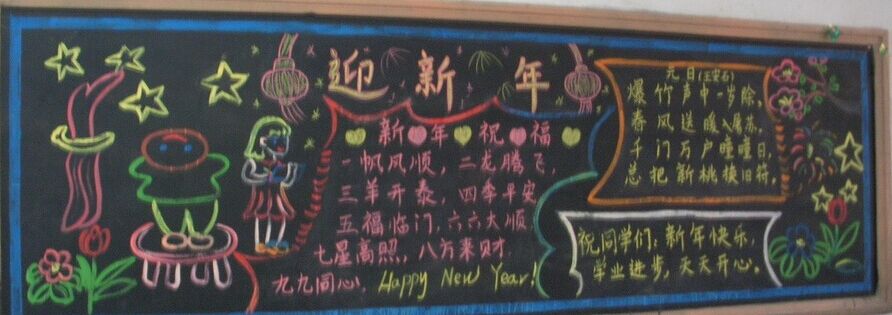 迎新年
新年祝福
一帆风顺，二龙腾飞，
三羊开泰，四季平安
五福临门，六六大顺
七星高照，八方来财
九九同心，Happy New Year!
元日(王安石)
爆竹声中一岁除，
春风送暖入屠苏，
千门万户曈曈日，
总把新桃换旧符。
祝同学们：新年快乐，
学业进步，天天开心。